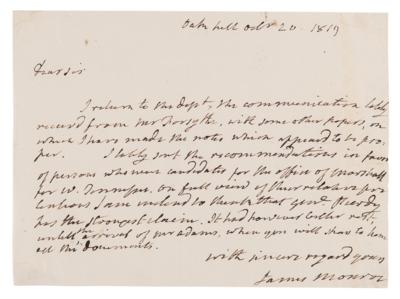 Oak hill Octr 20. 1819
Dear Sir
I return to the dept, the communication lately
recevd from Mr Forsyth, with some other papers, on
which I have made the notes which appeard to be pro-
per. I lately sent the recommendations in favor
of persons who were candidates for the office of Marshall
for W. Tennessee. On full view of their relative pre-
tentions I am inclind to think that
has the strongest claim. It had however better rest
untill the arrival of Mr Adams, when you will shew to him
all the documents.
with sincere regard yours
James Monroe